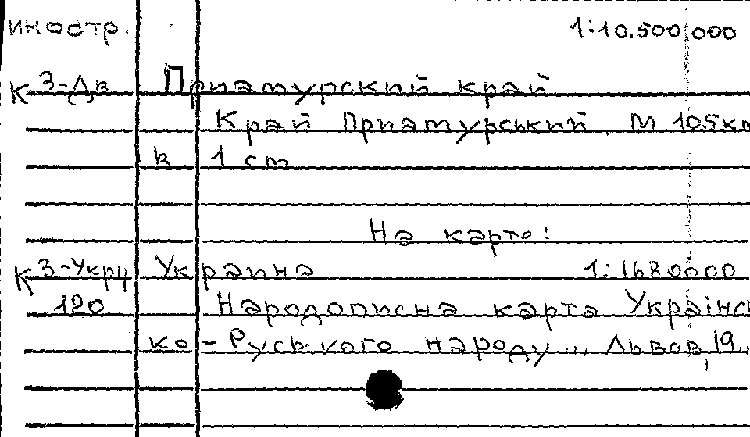 иностр. 1:10.500.000
К 3-Дв Приамурский край
Край Приамурський. М 105км
в 1 cm
На карте:
К 3-Укрц Украина 1:1680000
120 Народописна карта Українсь
ко-Руського народу.. Львов, 19